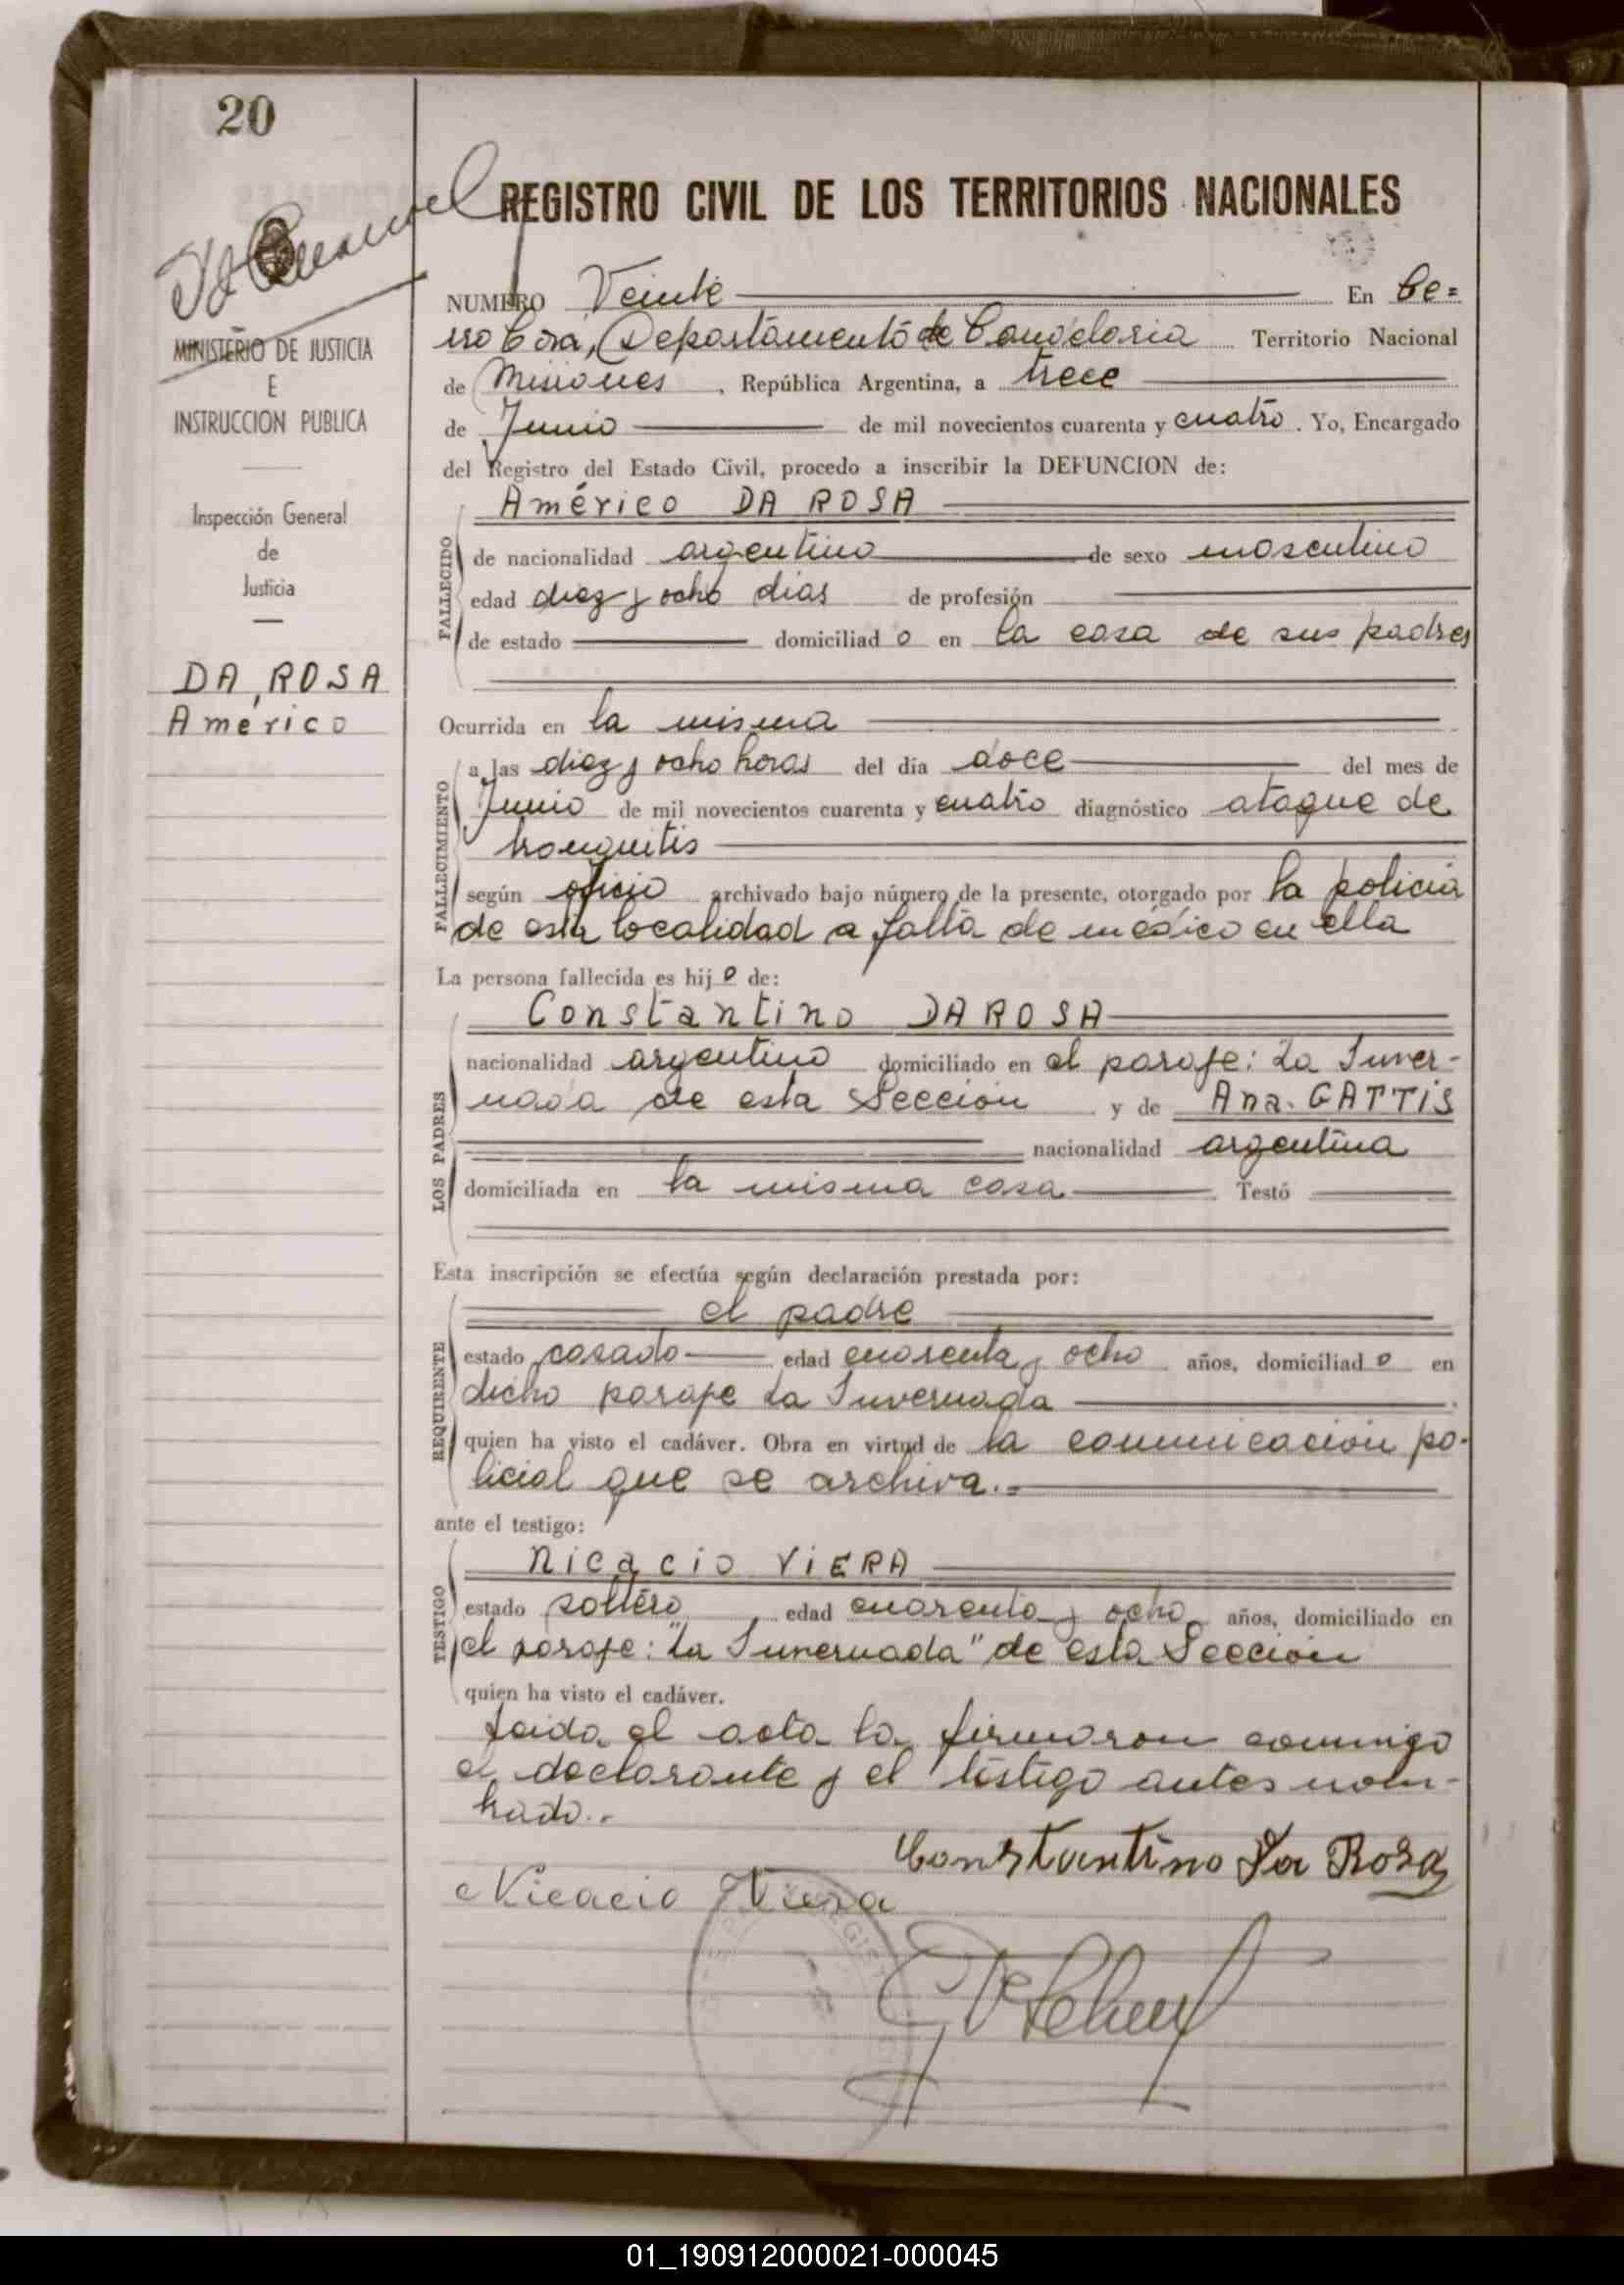 20
REGISTRO CIVIL DE LOS TERRITORIOS NACIONALES
MINISTERIO DE JUSTICIA
E
INSTRUCCION PUBLICA
Inspección General
de
Justicia
DA ROSA
Américo
NUMERO Veinte En Ce=
rro Corá, Departamento de Candelaria Territorio Nacional
de Misiones, República Argentina, a trece
de Junio de mil novecientos cuarenta y cuatro. Yo, Encargado
del Registro del Estado Civil, procedo a inscribir la DEFUNCION de:
Américo DA ROSA
FALLECIDO
de nacionalidad argentino de sexo masculino
edad diez y ocho días de profesión
de estado domiciliado en la casa de sus padres
Ocurrida en la misma
FALLECIMIENTO
a las diez y ocho horas del día doce del mes de
Junio de mil novecientos cuarenta y cuatro diagnóstico ataque de
bronquitis
según oficio archivado bajo número de la presente, otorgado por la policia
de esta localidad a falta de médico en ella
La persona fallecida es hijo de:
Constantino DA ROSA
LOS PADRES
nacionalidad argentino domiciliado en el paraje: La Inver-
nada de esta Sección y de Ana. GATTiS
nacionalidad argentina
domiciliada en la misma casa Testó
Esta inscripción se efectúa según declaración prestada por:
el padre
REQUIRENTE
estado casado edad cuarenta y ocho años, domiciliado en
dicho paraje La Invernada
quien ha visto el cadáver. Obra en virtud de la comunicación po-
licial que se archiva.=
ante el testigo:
Nicacio ViERA
TESTIGO
estado soltero edad cuarenta y ocho años, domiciliado en
el paraje: "La Invernada" de esta Sección
quien ha visto el cadáver.
Leida el acta la firmaron conmigo
el declarante y el testigo antes nom-
brado.-
Constantino Da Rosa
Nicacio Viera
01_190912000021-000045